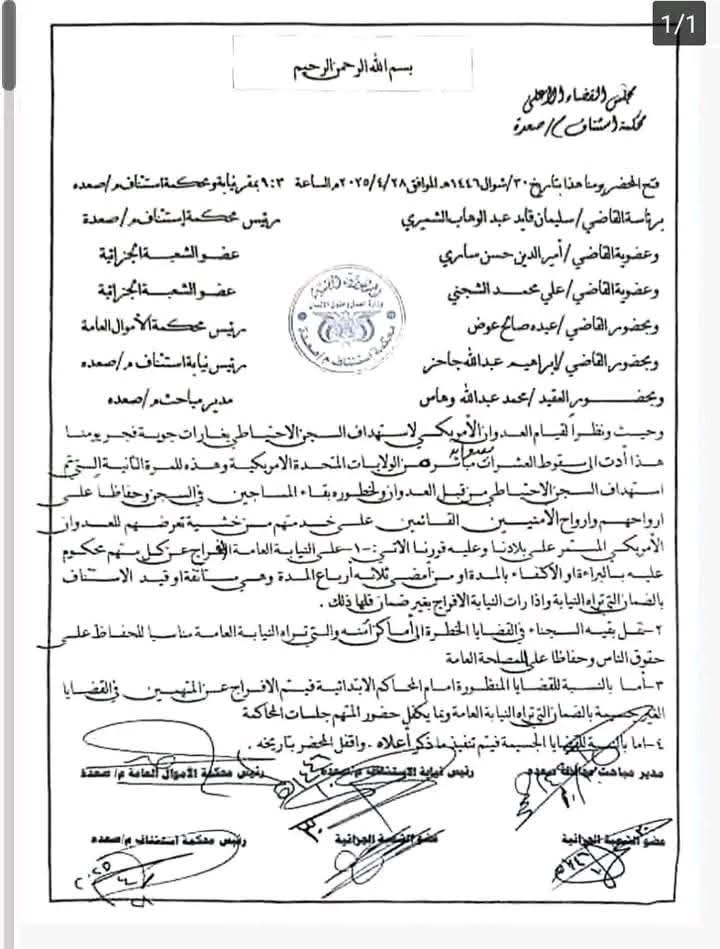 1/1
بسم الله الرحمن الرحيم
مجلس القضاء الأعلى
محكمة استئناف م/صعدة
فتح المحضر يومنا هذا بتاريخ ٣٠/شوال/١٤٤٦هـ الموافق ٢٠٢٥/٤/٢٨م الساعة ٩:٣ بمقر نيابة ومحكمة استئناف م/صعده
برئاسة القاضي/سليمان قايد عبد الوهاب الشميري رئيس محكمة إستئناف م/صعدة
وعضوية القاضي/أمير الدين حسن ساري عضو الشعبة الجزائية
وعضوية القاضي/علي محمد الشجني عضو الشعبة الجزائية
وبحضور القاضي/عبده صالح عوض رئيس محكمة الأموال العامة
وبحضور القاضي/إبراهيم عبدالله جاحز رئيس نيابة استئناف م/صعده
وبحضور العقيد/محمد عبدالله وهاس مدير مباحث م/صعده
وحيث ونظراً لقيام العدوان الأمريكي لاستهداف السجن الاحتياطي بغارات جوية فجر يومنا
هذا أدت الى سقوط العشرات مباشر من الولايات المتحدة الامريكية وهذه للمرة الثانية التي تم
استهداف السجن الاحتياطي من قبل العدوان ولخطوره بقاء المساجين في السجن وحفاظاً على
ارواحهم وارواح الأمنيين القائمين على خدمتهم من خشية تعرضهم للعدوان
الأمريكي المستمر على بلادنا وعليه قررنا الاتي:-١-على النيابة العامة الإفراج عن كل متهم محكوم
عليه بالبراءة او الاكتفاء بالمدة او من أمضى ثلاثه أرباع المدة وهي مستأنفة او قيد الاستئناف
بالضمان التي تراه النيابة واذا رات النيابة الافراج بغير ضمان فلها ذلك.
٢-تنقل بقيه السجناء في القضايا الخطرة الى أماكن آمنه والتي تراه النيابة العامة مناسبا للحفاظ على
حقوق الناس وحفاظا على المصلحة العامة
٣-أما بالنسبة للقضايا المنظورة امام المحاكم الابتدائية فيتم الافراج عن المتهمين في القضايا
الغير جسيمة بالضمان التي تراه النيابة العامة وبما يكفل حضور المتهم جلسات المحاكمة
٤-اما بالنسبة للقضايا الجسيمة فيتم تنفيذ ما ذكر أعلاه. واقفل المحضر بتاريخه.
مدير مباحث محافظة صعده رئيس نيابة الاستئناف م/صعده رئيس محكمة الأموال العامة م/صعدة
عضو الشعبة الجزائية عضو الشعبة الجزائية رئيس محكمة استئناف م/صعده